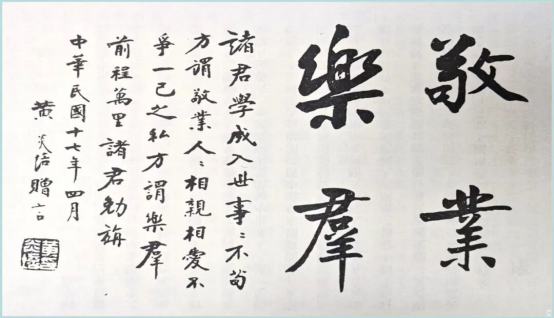 敬業
樂羣
諸君學成入世事〻不苟
方謂敬業人〻相親相愛不
爭一己之私方謂樂羣
前程萬里諸君勉旃
中華民國十七年四月
黃炎培贈言